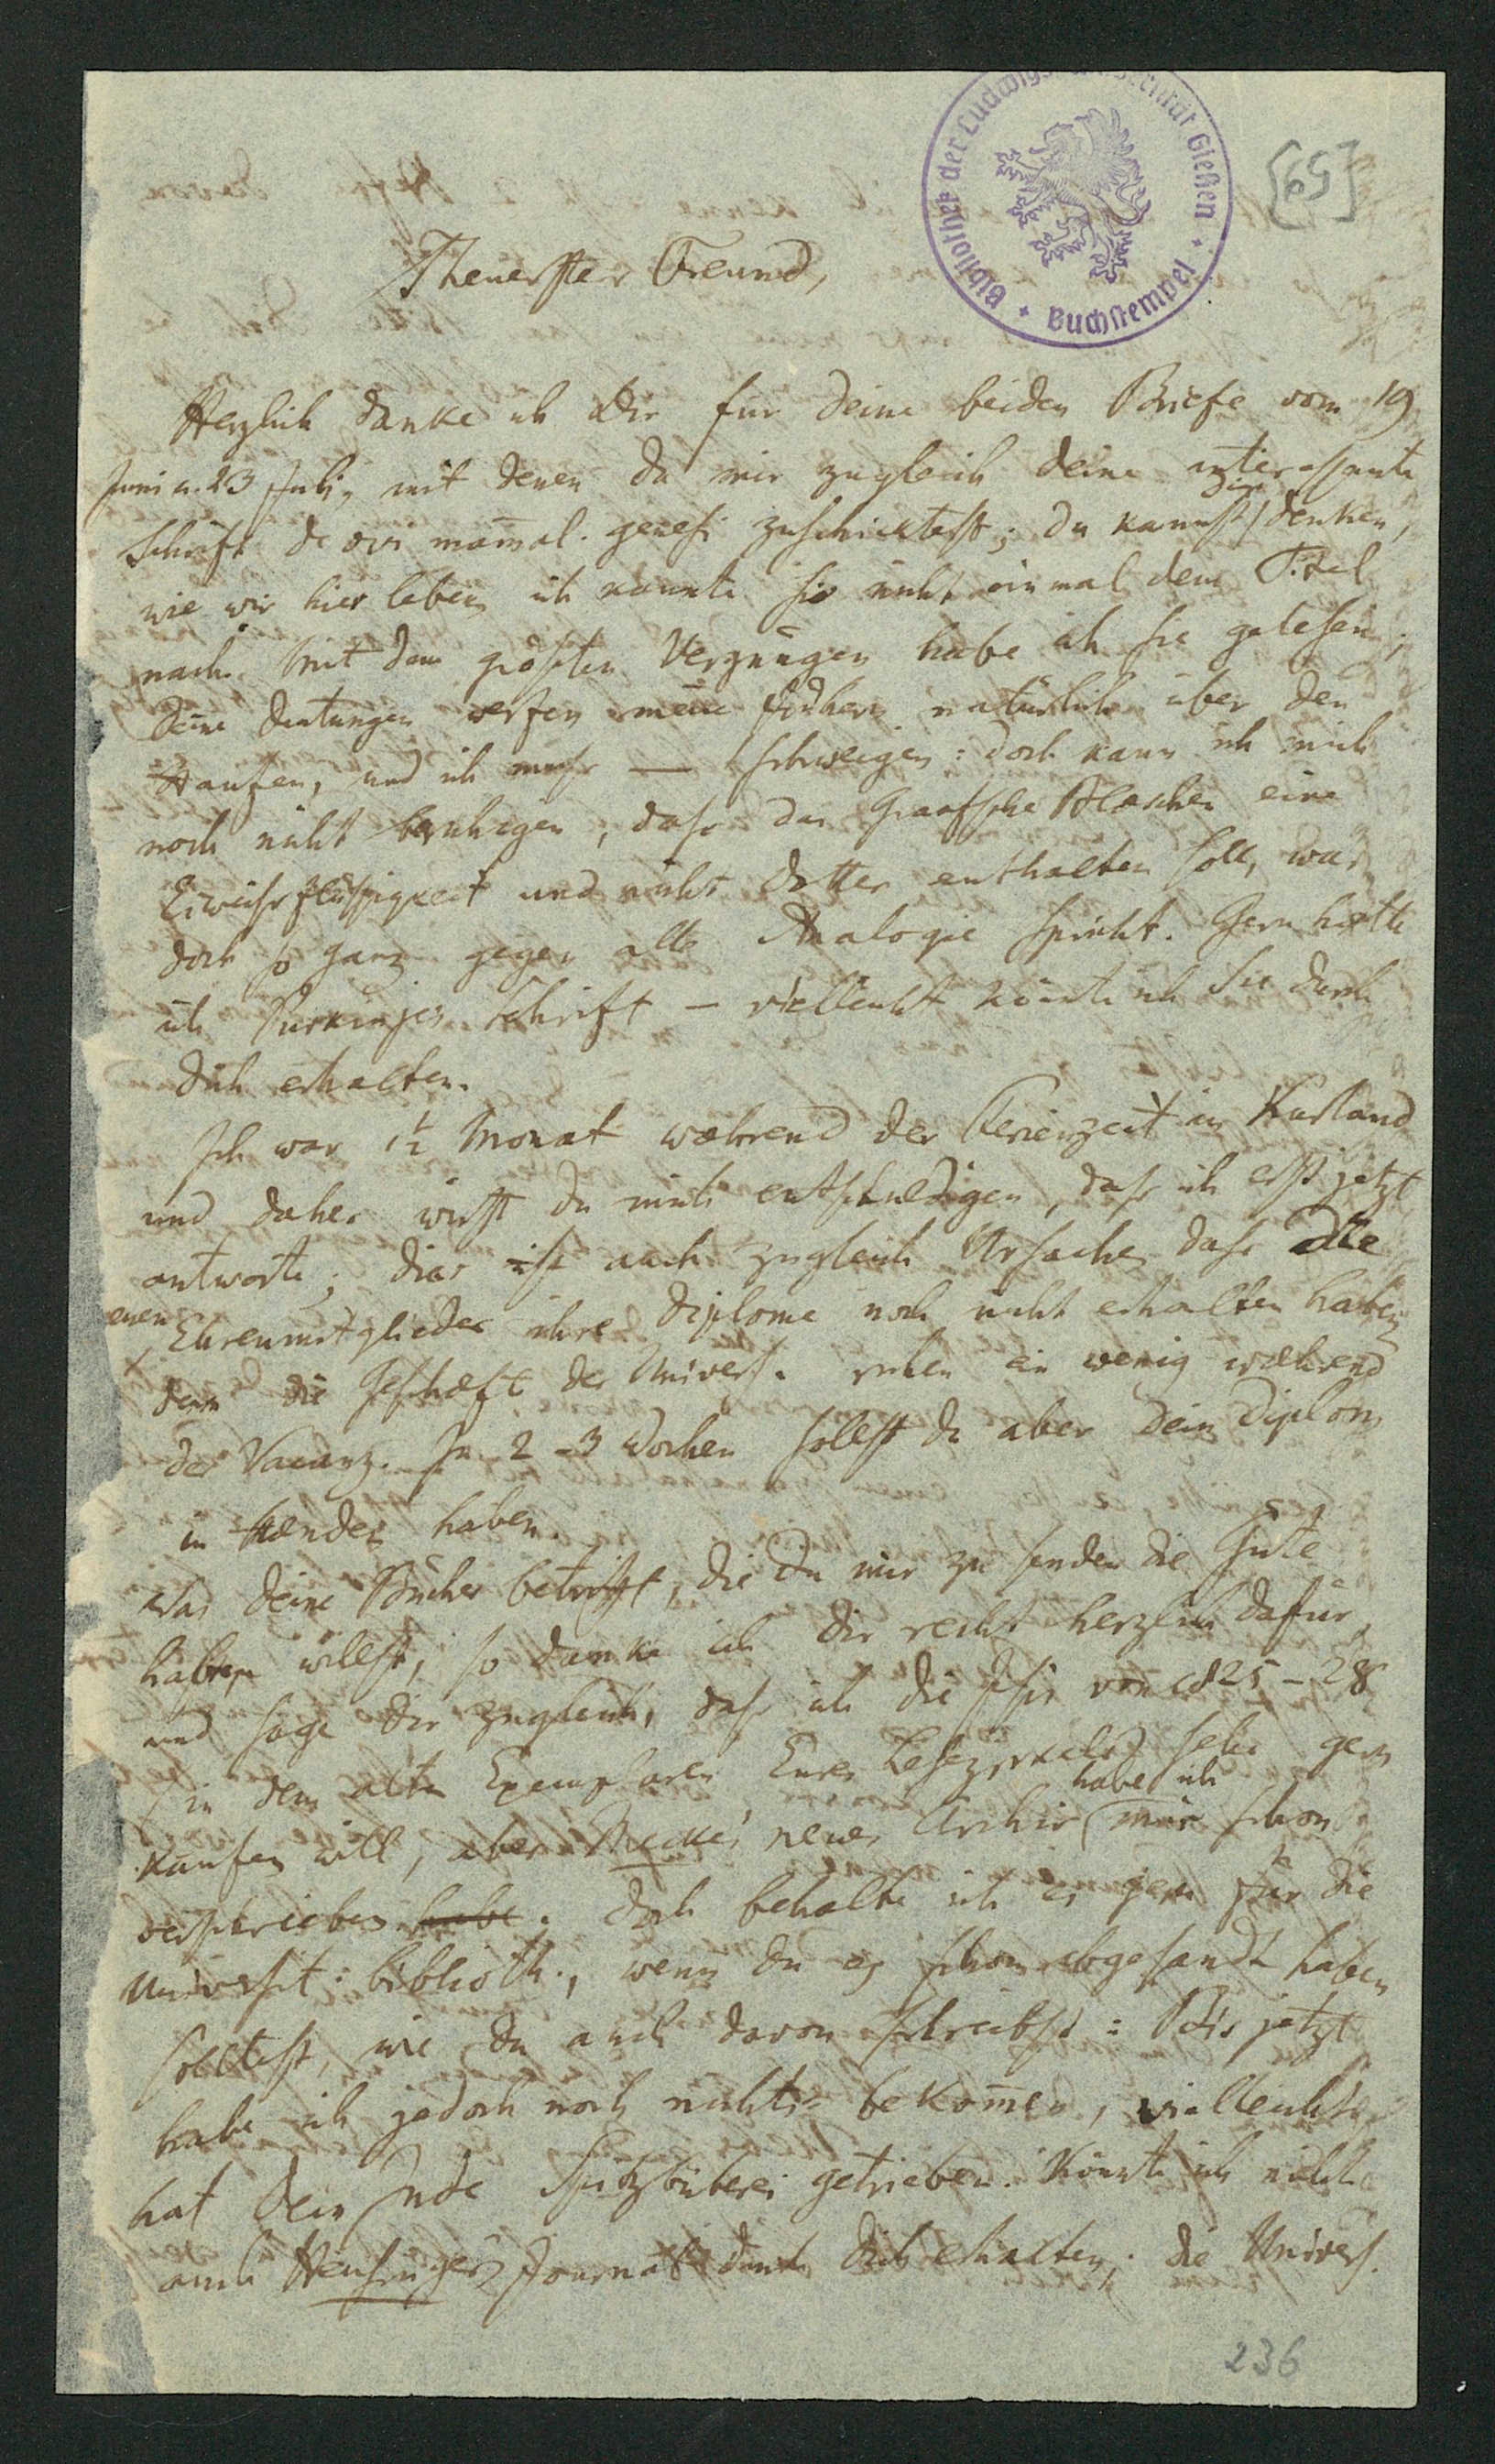 Bibliothek der Ludwigs-Universität Gießen · Buchstempel ·
[65]
Theuerster Freund,
Herzlich danke ich Dir für deine beiden Briefe vom 19
Juni u. 23 Juli, mit denen du mir zugleich deine interessante
Schrift de ovi mam̅al. genesi zuschicktest; du kannst dir denken,
wie wir hier leben, ich kannte sie nicht einmal dem Titel
nach. Mit dem größten Vergnügen habe ich sie gelesen;
deine Deutungen werfen meine frühern natürlich über den
Haufen, und ich muß — schweigen: doch kann ich mich
noch nicht beruhigen, daß das Graafsche Bläschen eine
Eiweißflüssigkeit und nicht Dotter enthalten soll, was
doch so ganz gegen alle Analogie spricht. Gern hätte
ich Purkinjes Schrift — vielleicht könnte ich sie durch
dich erhalten.
Ich war 1½ Monat während der Ferienzeit in Kurland
und daher wirst du mich entschuldigen, daß ich erst jetzt
antworte; dies ist auch zugleich Ursache, daß alle
Ehrenmitglieder ihre Diplome noch nicht erhalten haben,
denn die Geschæft der Univers. ruhen ein wenig während
der Vacanz. In 2–3 Wochen sollst du aber dein Diplom
in Hænden haben.
Was deine Bücher betrifft, die Du mir zu senden die Güte
haben willst, so danke ich dir recht herzlich dafür,
und sage dir zugleich, daß ich die Isis von 1825–28
in dem alten Exemplaren Eures Lesezirkels sehr gern
kaufen will, aber Meckel's neues Archiv habe ich mir schon
verschrieben habe. Doch behalte ich es gern für die
Universit: biblioth., wenn du es schon abgesandt haben
solltest, wie du auch davon schreibst: Bis jetzt
habe ich jedoch noch nichts bekom̅en, vielleicht
hat dein Jude Spitzbüberei getrieben. Könnte ich nicht
auch Heusingers Journal durch dich erhalten; die Univers.
236